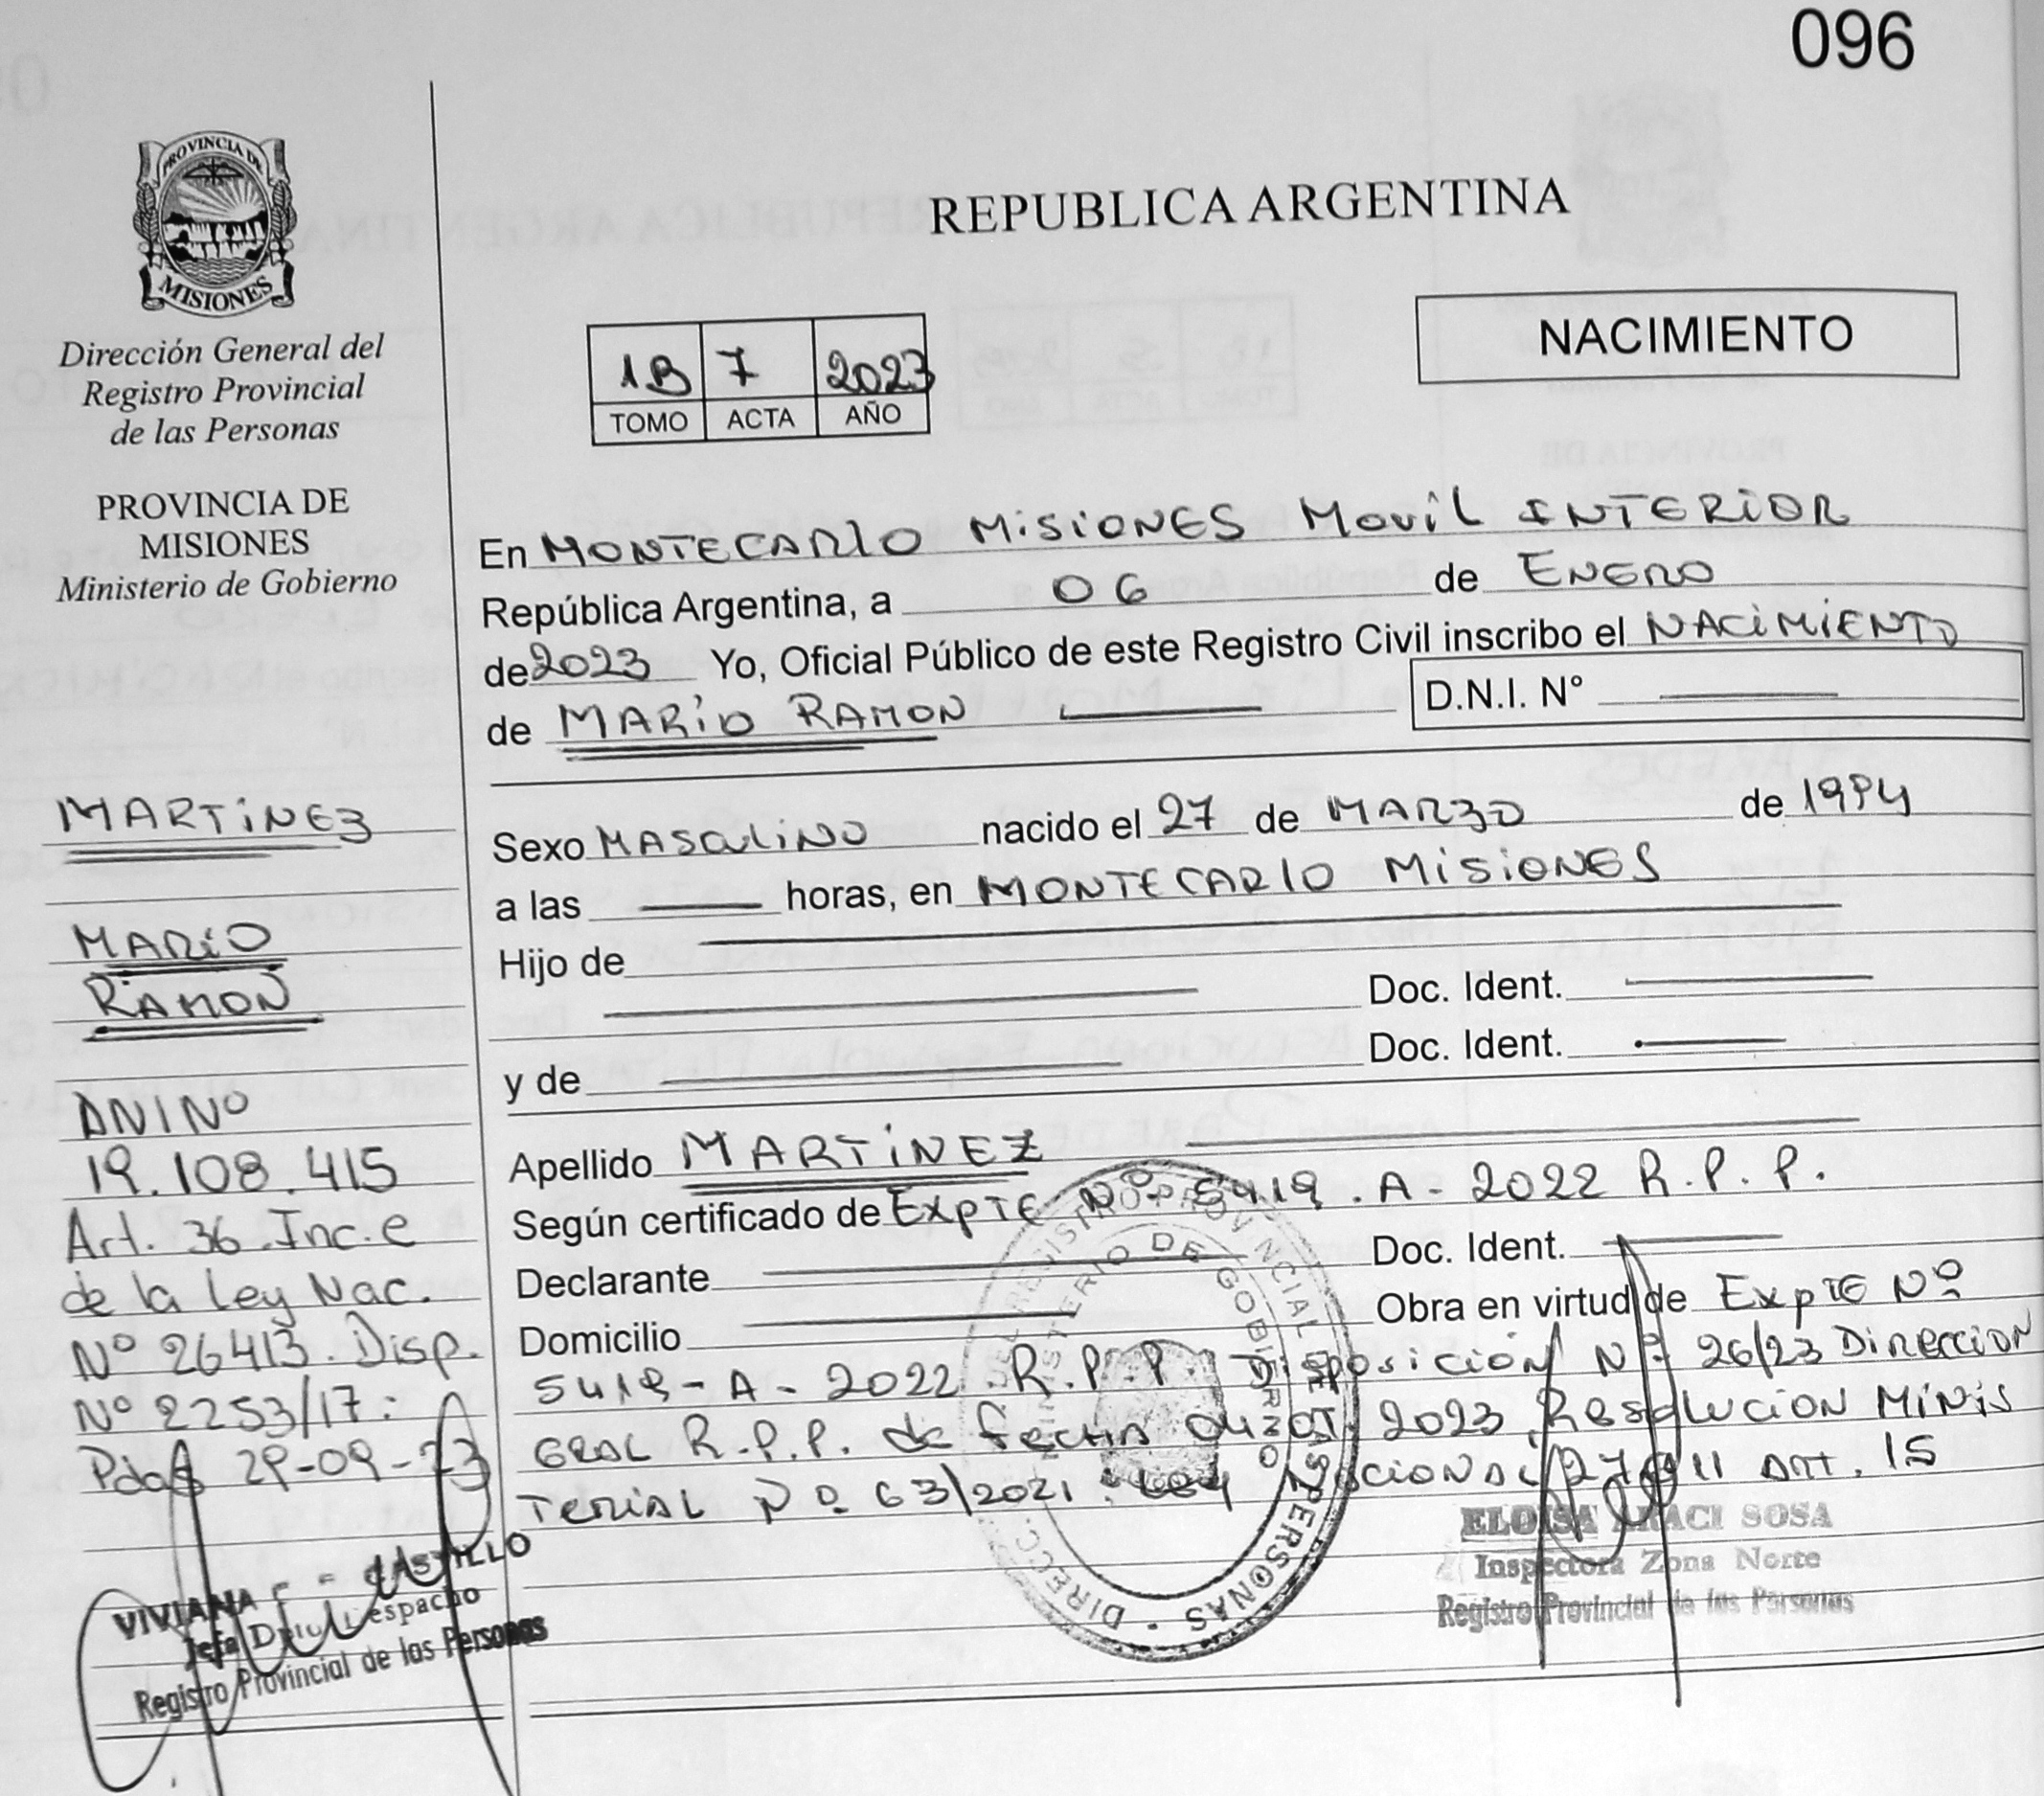 096
PROVINCIA DE
MISIONES
Dirección General del
Registro Provincial
de las Personas
PROVINCIA DE
MISIONES
Ministerio de Gobierno
MARTiNEZ
MARiO
RAMON
DNI Nº
19.108.415
Art. 36.Inc.e
de la Ley Nac.
Nº 26413. Disp.
Nº 2253/17:
Pdas 29-09-23
VIVIANA CASTILLO
Jefa Despacho
Registro Provincial de las Personas
REPUBLICA ARGENTINA
1B 7 2023
TOMO ACTA AÑO
NACIMIENTO
En MONTECARlO MiSiONES MoviL INTERiOR
República Argentina, a 06 de ENERO
de 2023 Yo, Oficial Público de este Registro Civil inscribo el NACiMiENTO
de MARiO RAMON D.N.I. N°
Sexo MASCuLiNO nacido el 27 de MARZO de 1994
a las horas, en MONTECARlO MiSiONES
Hijo de
Doc. Ident.
y de Doc. Ident.
Apellido MARTiNEZ
Según certificado de EXpTE Nº 5419.A-2022 R.P.P.
Declarante Doc. Ident.
Domicilio Obra en virtud de ExpTE Nº
5419-A-2022 R.P.P. Disposición Nº 26/23 DiRECCiON
GRAL R.P.P. de fecha 04 01 2023, Resolucion MiNiS
TERiAL Nº 63/2021 Art. 15
DIRECC. DEL REGISTRO PROVINCIAL DE LAS PERSONAS
MINISTERIO DE GOBIERNO
ELOISA ARACI SOSA
Inspectora Zona Norte
Registro Provincial de las Personas